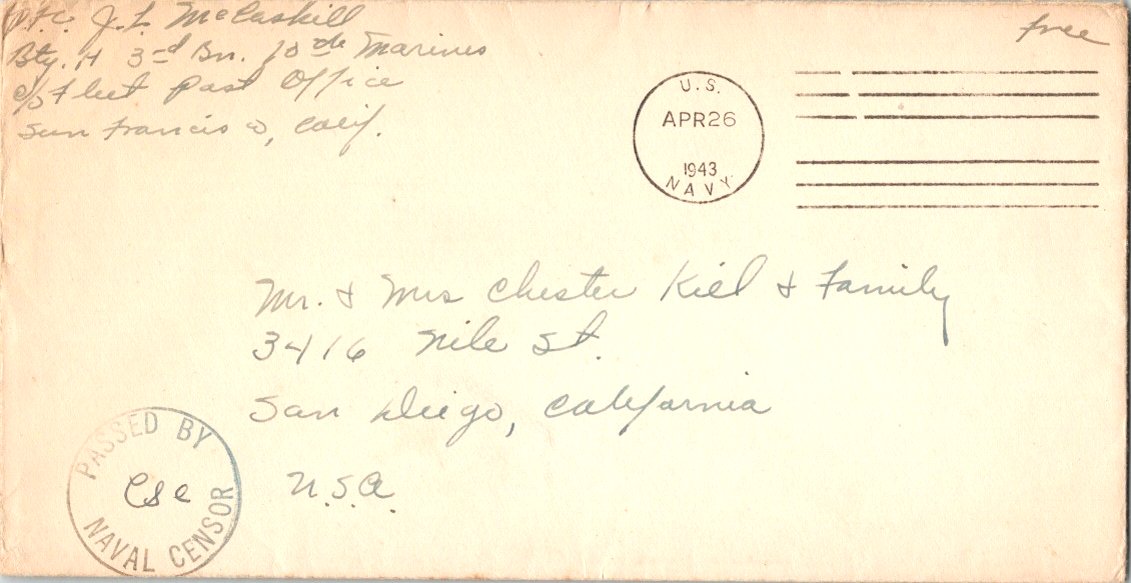 Pfc. J. L. McCaskill
Bty. H 3rd Bn. 10th Marines
c/o Fleet Post Office
San Francisco, Calif.
free
U.S.
APR 26
1943
NAVY
Mr. & Mrs Chester Kiel & Family
3416 Nile St.
San Diego, California
U.S.A.
PASSED BY
CSC
NAVAL CENSOR